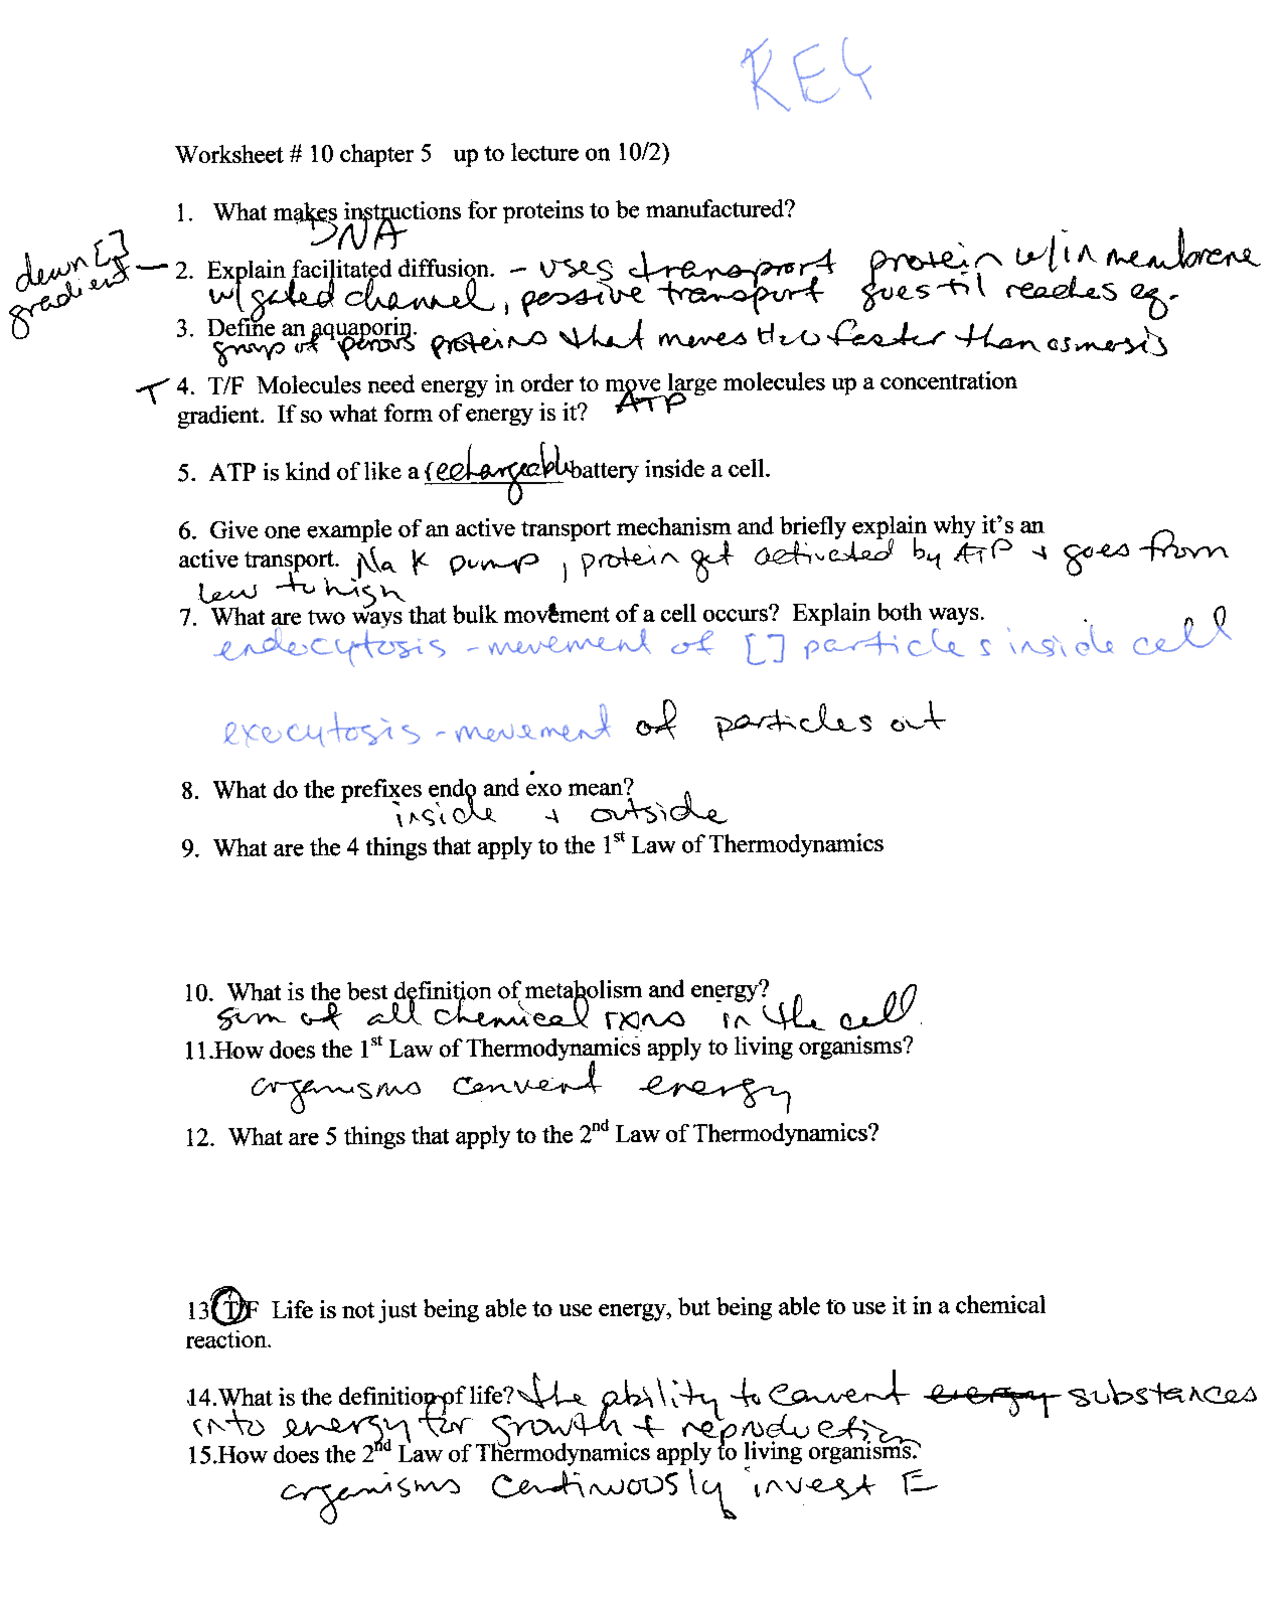 KEY
Worksheet # 10 chapter 5 up to lecture on 10/2)
1. What makes instructions for proteins to be manufactured?
DNA
down [ ] gradient —
2. Explain facilitated diffusion. - uses transport protein w/in membrane
w/ gated channel, passive transport goes til reaches eq.
3. Define an aquaporin.
group of porous proteins that moves H2O faster than osmosis
T 4. T/F Molecules need energy in order to move large molecules up a concentration
gradient. If so what form of energy is it? ATP
5. ATP is kind of like a rechargeable battery inside a cell.
6. Give one example of an active transport mechanism and briefly explain why it's an
active transport. Na K pump, protein get activated by ATP + goes from
low to high
7. What are two ways that bulk movement of a cell occurs? Explain both ways.
endocytosis - movement of [ ] particles inside cell
exocytosis - movement of particles out
8. What do the prefixes endo and exo mean?
inside + outside
9. What are the 4 things that apply to the 1st Law of Thermodynamics
10. What is the best definition of metabolism and energy?
sum of all chemical rxns in the cell.
11.How does the 1st Law of Thermodynamics apply to living organisms?
organisms convert energy
12. What are 5 things that apply to the 2nd Law of Thermodynamics?
13 T/F Life is not just being able to use energy, but being able to use it in a chemical
reaction.
14.What is the definition of life? the ability to convert energy substances
into energy for growth + reproduction
15.How does the 2nd Law of Thermodynamics apply to living organisms?
organisms continuously invest E